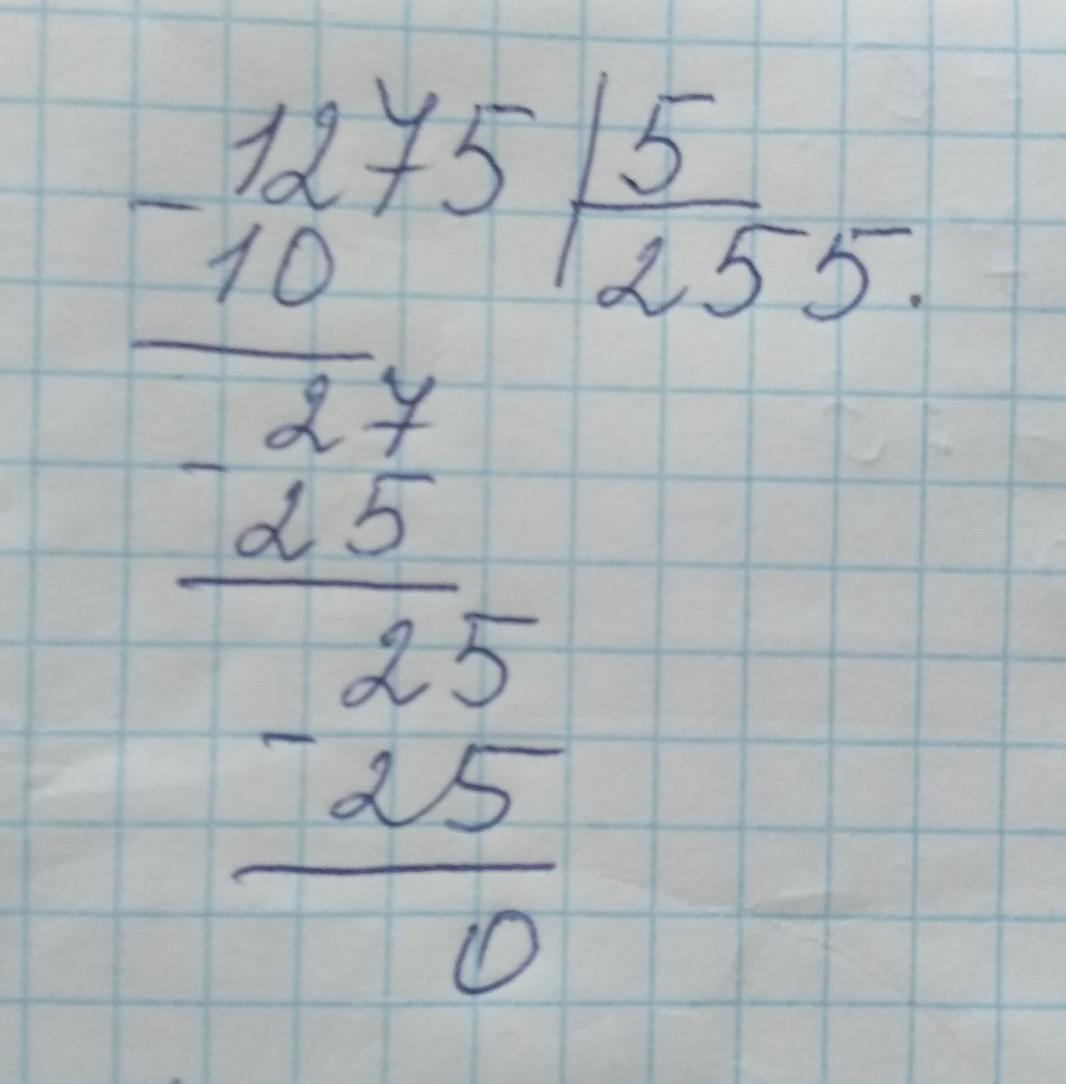 1275 | 5
- 10 255.
27
- 25
25
- 25
0